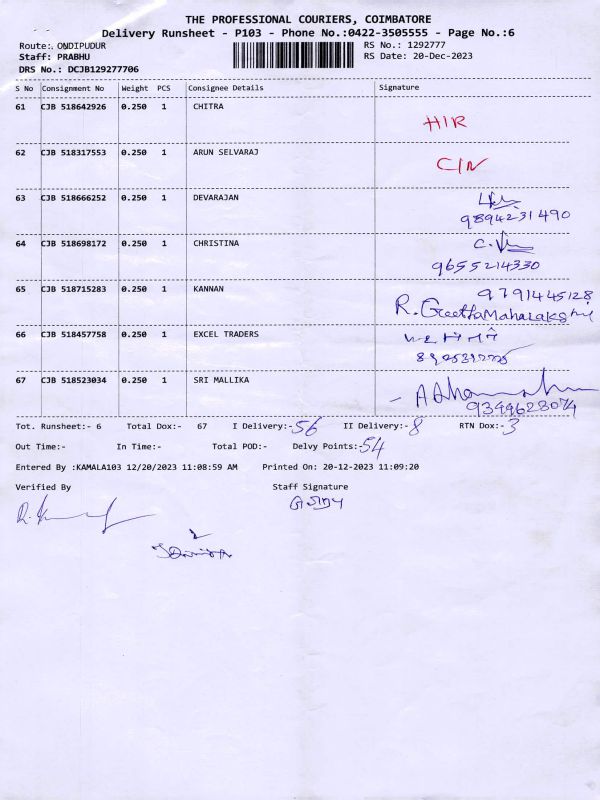 THE PROFESSIONAL COURIERS, COIMBATORE
Delivery Runsheet - P103 - Phone No.:0422-3505555 - Page No.:6
Route: ONDIPUDUR
RS No.: 1292777
Staff: PRABHU
RS Date: 20-Dec-2023
DRS No.: DCJB129277706
S No Consignment No Weight PCS Consignee Details Signature
61 CJB 518642926 0.250 1 CHITRA
H/R
62 CJB 518317553 0.250 1 ARUN SELVARAJ
C/N
63 CJB 518666252 0.250 1 DEVARAJAN
9894231490
64 CJB 518698172 0.250 1 CHRISTINA
9655214330
65 CJB 518715283 0.250 1 KANNAN
9791445128
R. Geetha
66 CJB 518457758 0.250 1 EXCEL TRADERS
67 CJB 518523034 0.250 1 SRI MALLIKA
9349623074
Tot. Runsheet:- 6 Total Dox:- 67 I Delivery:- 56 II Delivery:- 8 RTN Dox:- 3
Out Time:- In Time:- Total POD:- Delvy Points:- 54
Entered By :KAMALA103 12/20/2023 11:08:59 AM Printed On: 20-12-2023 11:09:20
Verified By Staff Signature